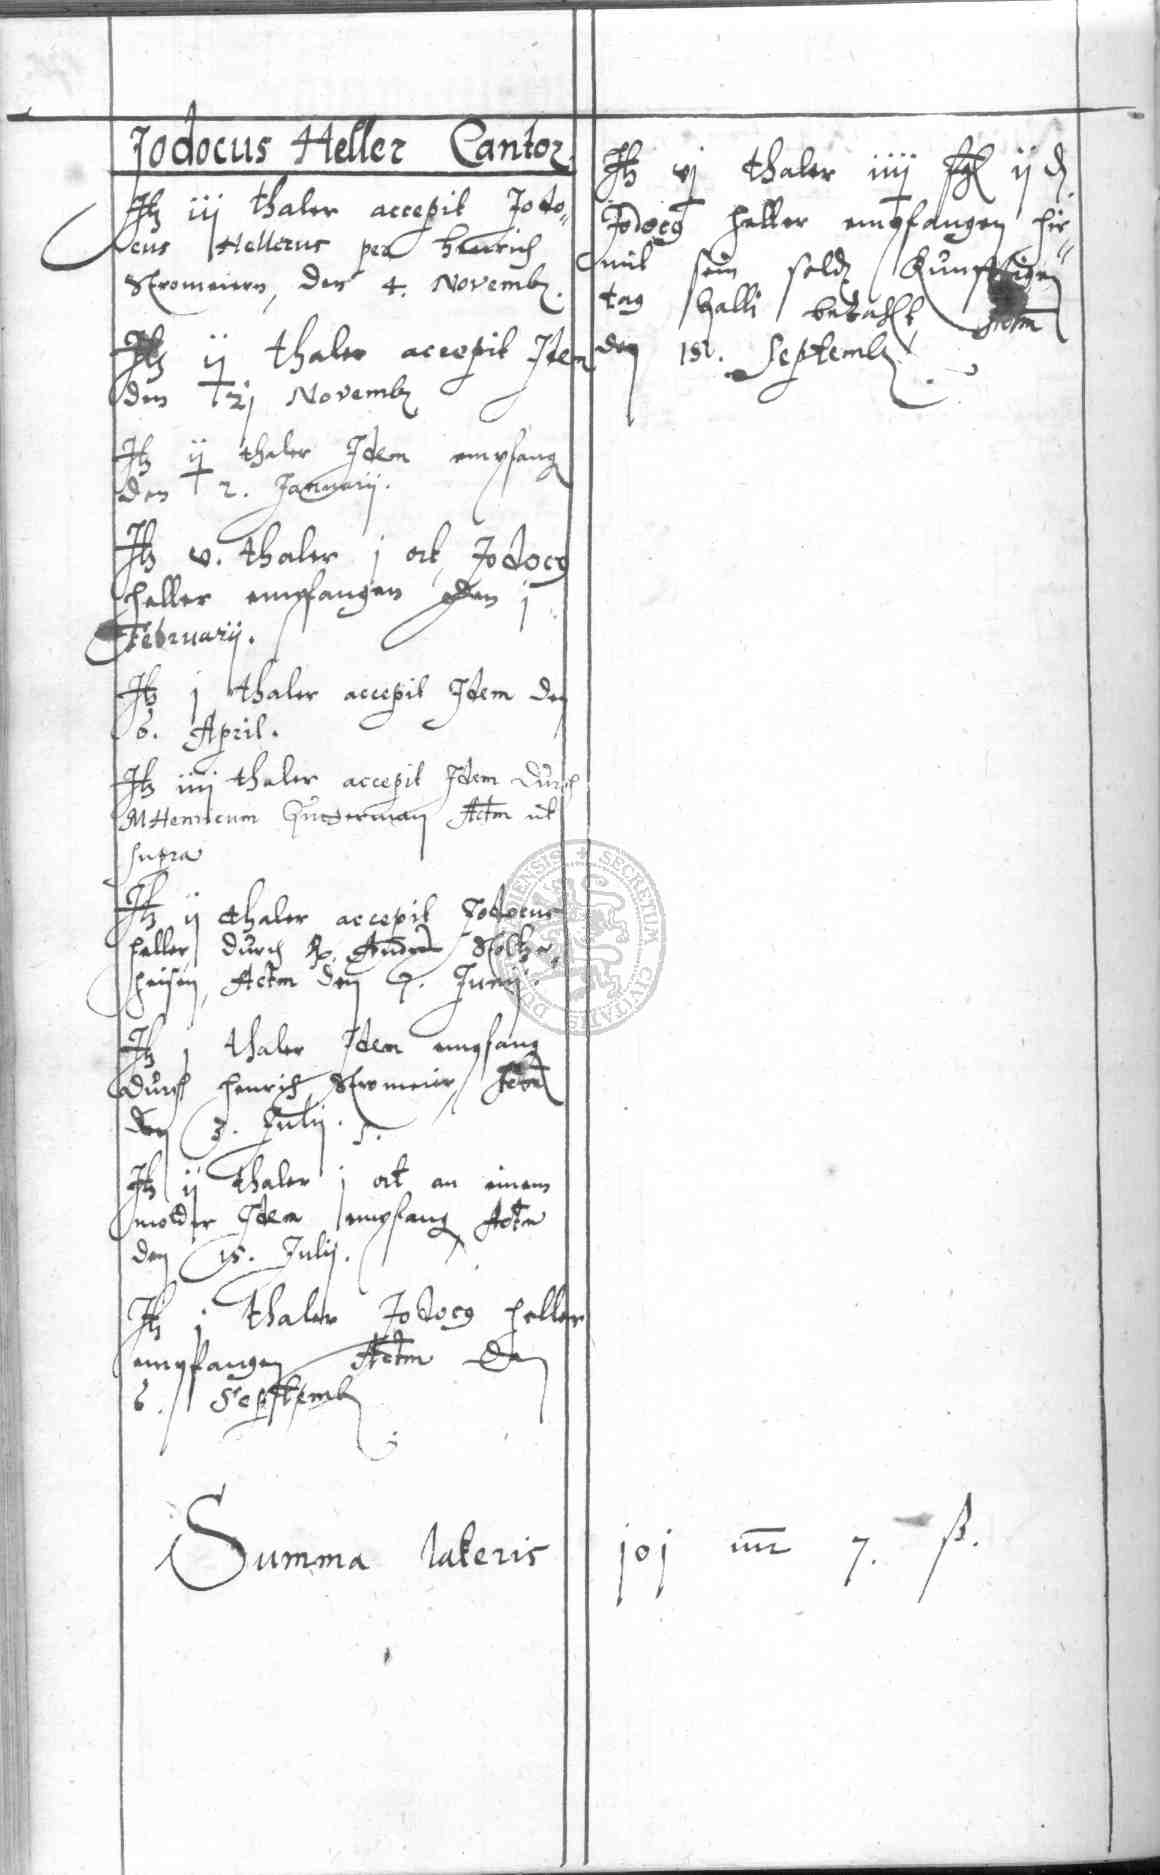 Jodocus Heller Cantor
Itz iij thaler accepit Jodo-
cus Hellerus per Henrich
Stromeiern, den 4. Novemb.
Itz ij thaler accepit Idem
den 21 Novemb
Itz ij thaler Idem empfang
den 2. Januarij.
Itz v. thaler j ort Jodocg
Heller empfangen den j
Februarij.
Itz j thaler accepit Idem den
6. April.
Itz iiij thaler accepit Idem durch
M Henricum Actm ut
supra
Itz ij thaler accepit Jodocus
Heller durch Stoltzer
heisen, Actm den 7. Junij.
Itz j thaler Idem empfang
durch Henrich Stromeier, Actm
den 3. Julij.
Itz ij thaler j ort an einem
molder Idem empfang Actm
den 15. Julij.
Itz j thaler Jodocg Heller
empfangen Actm den
6. Septemb
Itz vj thaler iiij ij d
Jodocg Heller empfangen hir-
mit sein soldt
tag Galli bezahlt Actm
den 18. Septemb
Summa lateris joj 7. ß.
SECRETUM CIVITATIS